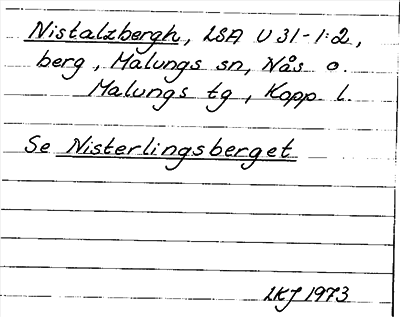 Nistalzbergh, LSA U 31-1:2,
berg, Malungs sn, Nås o.
Malungs tg, Kopp l.
Se Nisterlingsberget
LKJ 1973